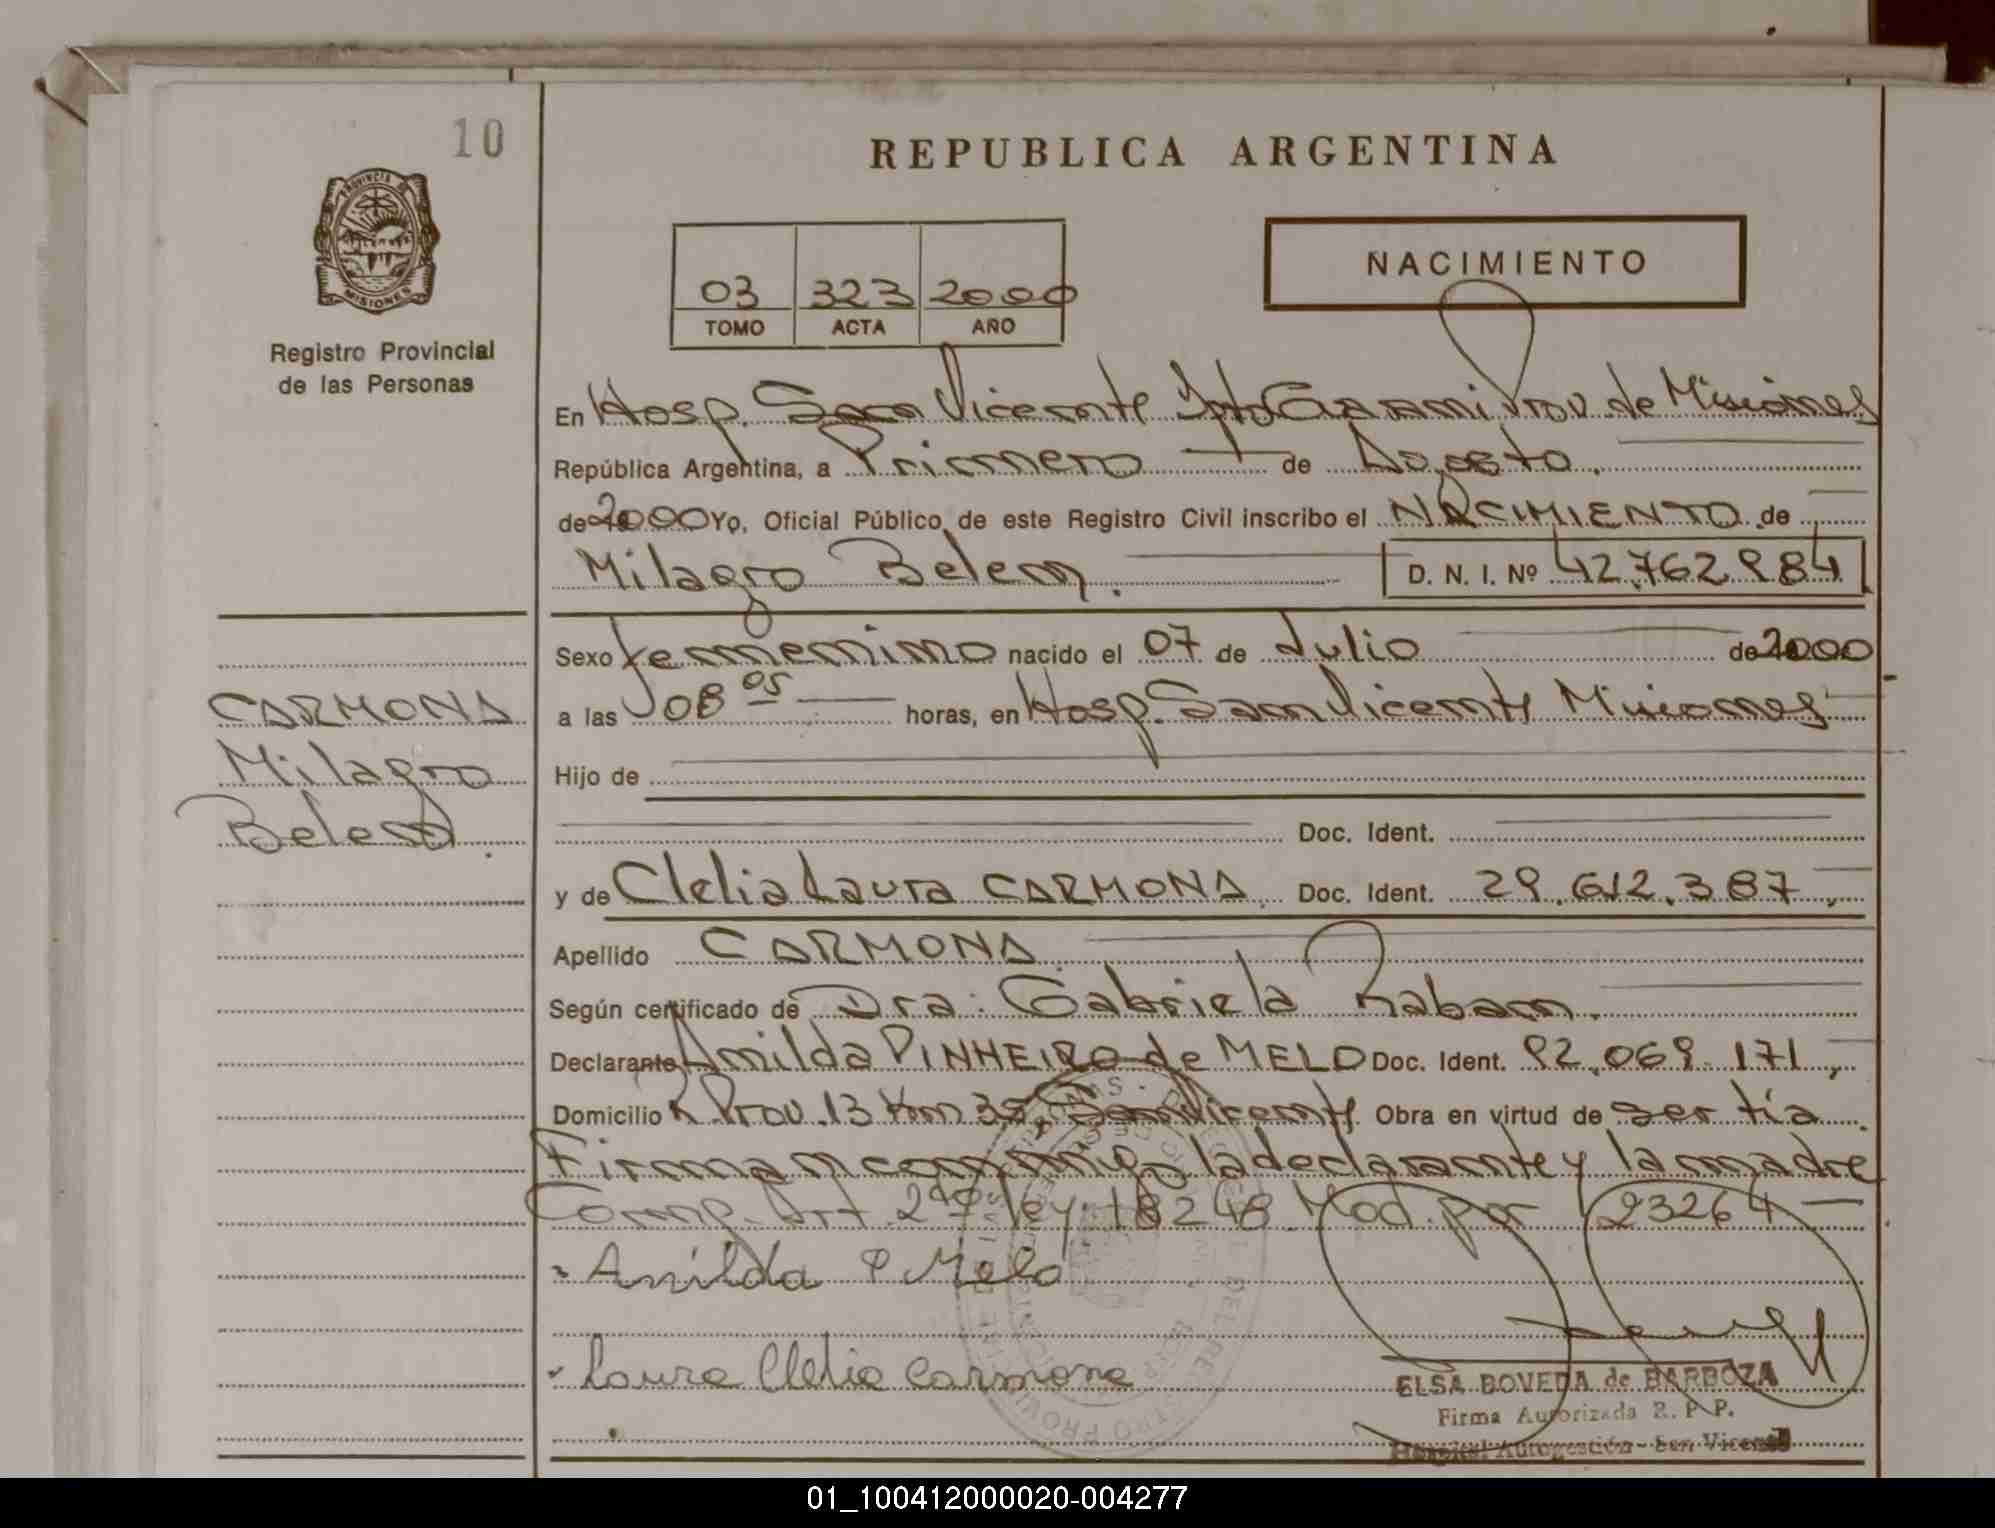 10
REPUBLICA ARGENTINA
PROVINCIA DE
MISIONES
Registro Provincial
de las Personas
NACIMIENTO
03 323 2000
TOMO ACTA AÑO
En Hosp. San Vicente Dpto Guaraní Prov de Misiones
República Argentina, a Primero de Agosto.
de 2000 Yo, Oficial Público de este Registro Civil inscribo el NACIMIENTO de
Milagro Belem. D. N. I. Nº 42.762.984
Sexo femenino nacido el 07 de Julio de 2000
a las 08 05 horas, en Hosp. San Vicente Misiones
CARMONA
Milagro
Belem.
Hijo de
Doc. Ident.
y de Clelia Laura CARMONA. Doc. Ident. 29.612.387,
Apellido CARMONA.
Según certificado de Dra: Gabriela Raban.
Declarante Anilda PINHEIRO de MELO Doc. Ident. 92.069.171,
Domicilio R. Prov. 13 Km 35 San Vicente. Obra en virtud de ser tía.
Firman conmigo la declarante y la madre
Comp. Art. 2do Ley 18248 Mod. por 23264
Anilda P Melo
Laura Clelia Carmona
ELSA BOVEDA de BARBOZA
Firma Autorizada R. P. P.
Hospital Autogestión - San Vicente
01_100412000020-004277